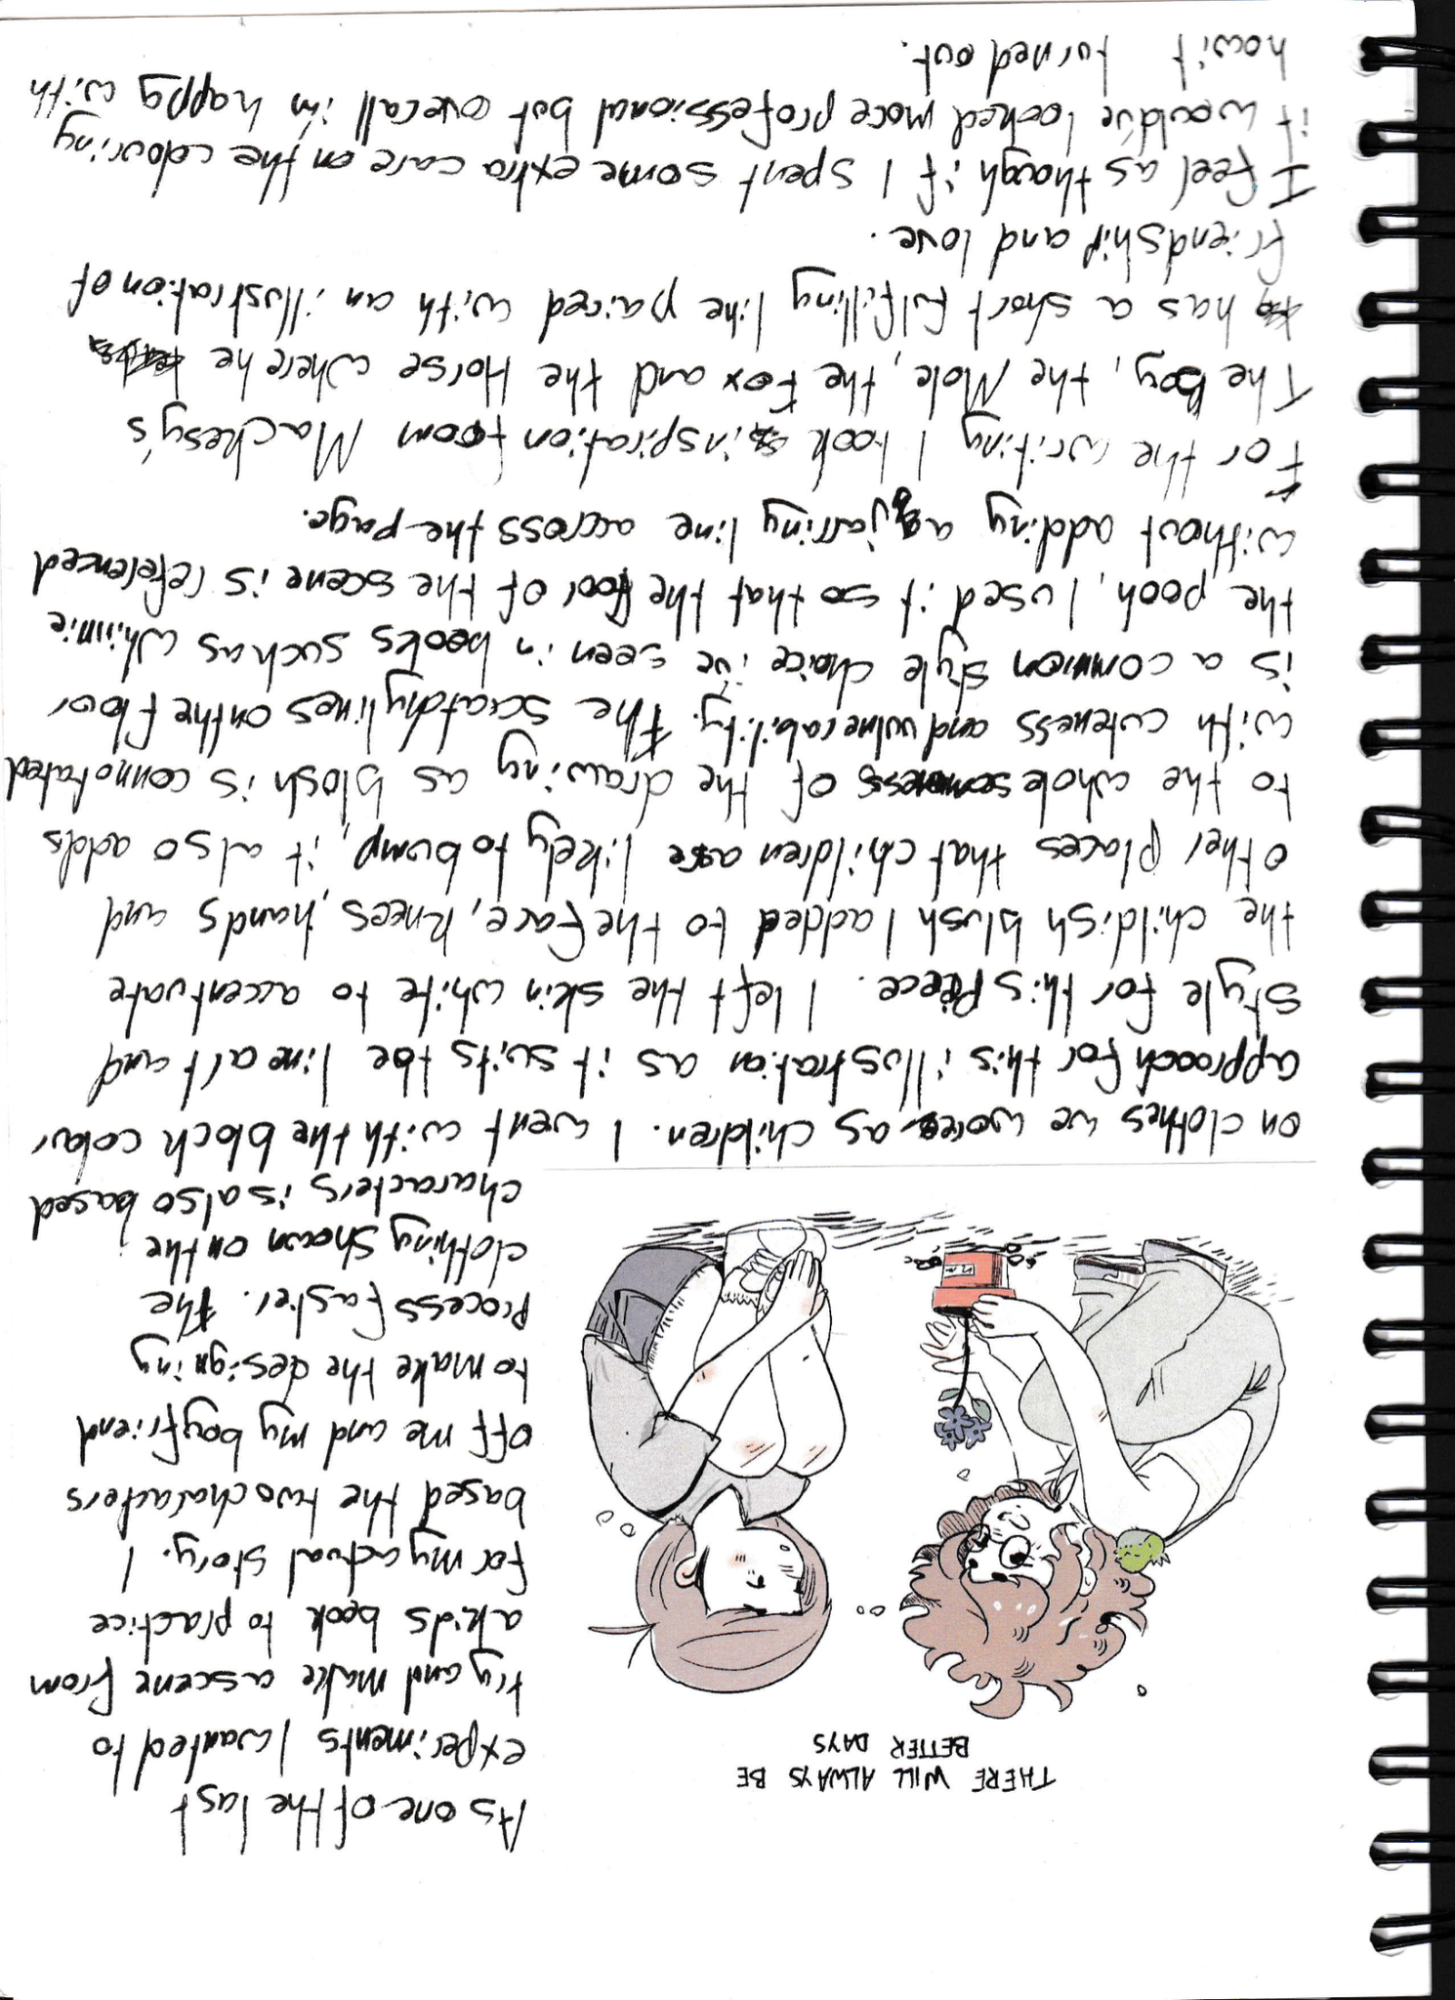 THERE WILL ALWAYS BE
BETTER DAYS
As one of the last
experiments I wanted to
try and make a scene from
a kids book to practice
for my actual story. I
based the two characters
off me and my boyfriend
to make the designing
process faster. The
clothing shown on the
characters is also based
on clothes we wore as children. I went with the block colour
approach for this illustration as it suits the line art and
style for this piece. I left the skin white to accentuate
the childish blush I added to the face, knees, hands and
other places that children are likely to bump, it also adds
to the wholesomeness of the drawing as blush is connotated
with cuteness and vulnerability. The scratchy lines on the floor
is a common style choice i've seen in books such as whinnie
the pooh, I used it so that the floor of the scene is referenced
without adding a jarring line across the page.
For the writing I took inspiration from Mackesy's
The Boy, the Mole, the Fox and the Horse where he
has a short fulfilling line paired with an illustration of
friendship and love.
I feel as though if I spent some extra care on the colouring
it would've looked more professional but overall i'm happy with
how it turned out.